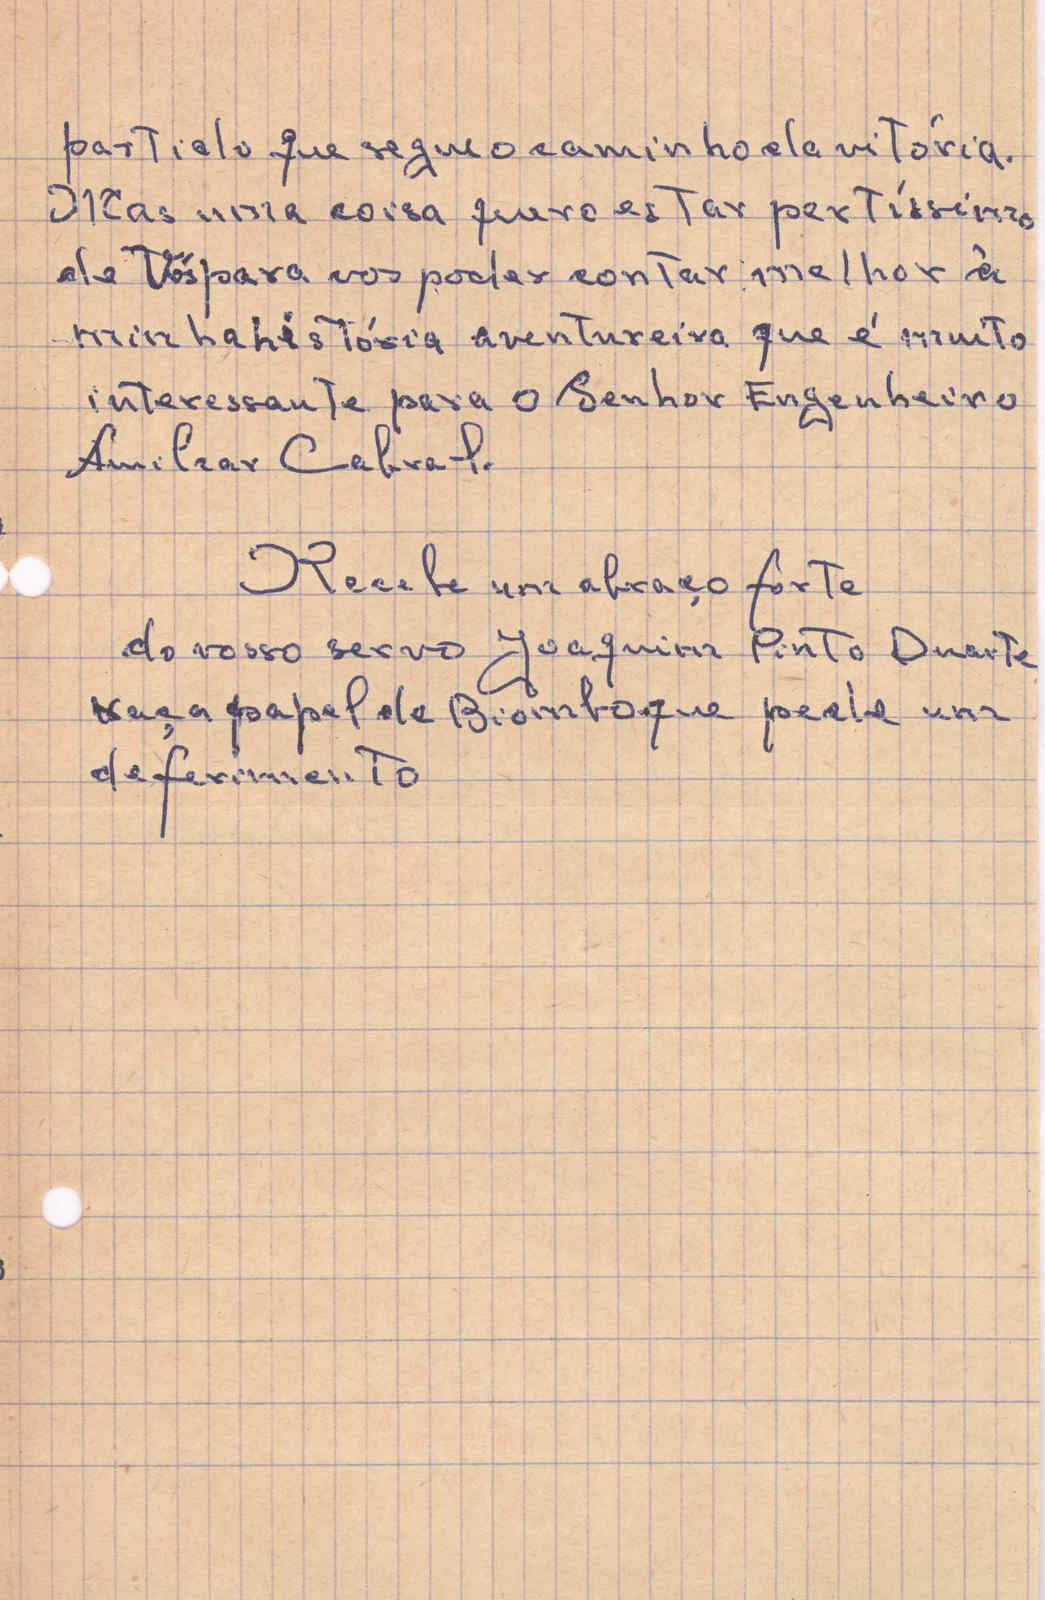 partido que segue o caminho da vitória.
Mas uma coisa quero estar pertíssimo
de Vós para vos poder contar melhor à
minha história aventureira que é muito
interessante para o Senhor Engenheiro
Amilcar Cabral.
Recebe um abraço forte
do vosso servo Joaquim Pinto Duarte
raça papel de Biombo que pede um
deferimento